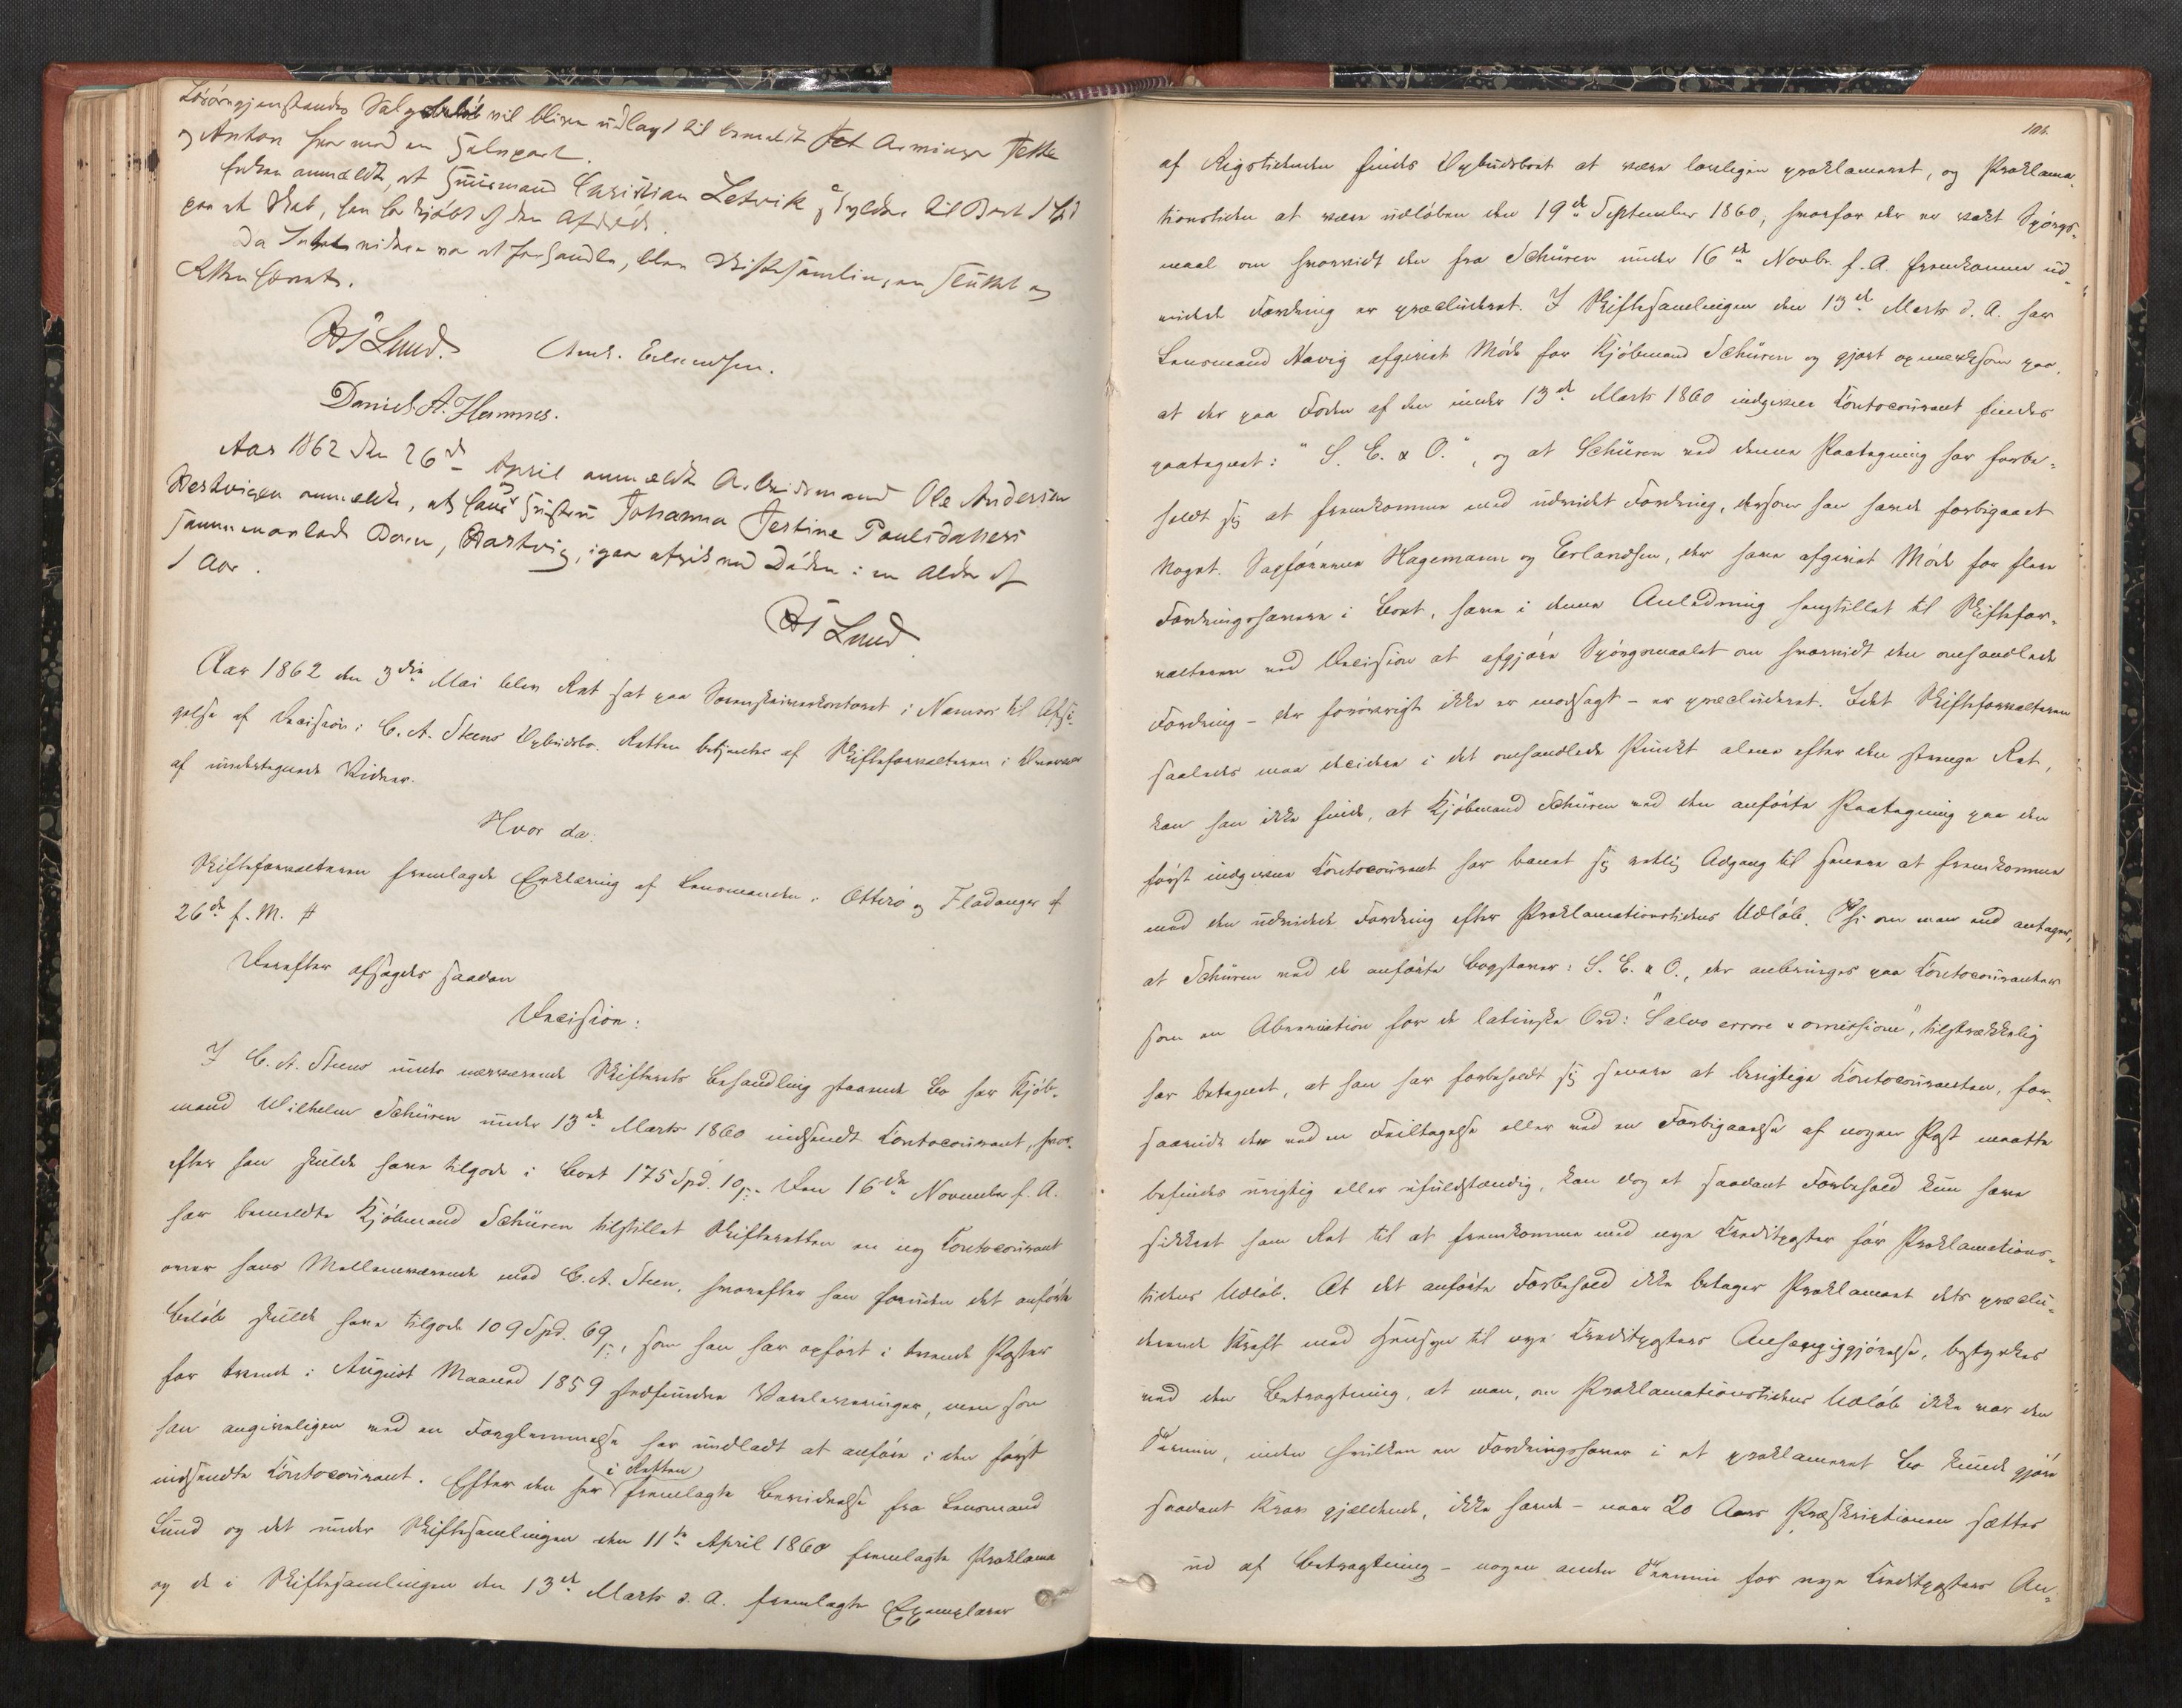 Løsøregjenstandes Salg vil blive udlagt til
og Anton hver med en Halvpart.
Enken anmeldte, at Huusmand Christian Letvik skylder til Boet 1 Spd
paa et Skab, han har kjøbt af den Afdøde.
Da Intet videre var at forhandle, blev Skiftesamlingen sluttet og
Retten hævet.
Lund. And. Erlandsen.
Daniel A. Hamnes.
Aar 1862 den 26de April anmeldte Arbeidsmand Ole Andersen
Vestvigen anmeldte, at hans Hustru Johanna Jertine Paulsdatters
sammenavlede Barn, Hartvig, igaar afgik ved Døden i en Alder af
1 Aar.
Lund
Aar 1862 den 3die Mai blev Ret sat paa Sorenskriverkontoret i Namsos til Afsi-
gelse af Decision i C. A. Steens Opbudsbo. Retten betjentes af Skifteforvalteren i Overvær
af undertegnede Vidner.
Hvor da:
Skifteforvalteren fremlagde Erklæring af Lensmanden i Otterø og Fladanger af
26de f. M. #
Derefter afsagdes saadan
Decision:
I C. A. Steens under nærværende Skifterets Behandling staaende Bo har Kjøb-
mand Wilhelm Schüren under 13de Marts 1860 indsendt Contocourant, hvor-
efter han skulde have tilgode i Boet 175 Spd. 10 s. Den 16de November f. A.
har bemeldte Kjøbmand Schüren tilstillet Skifteretten en ny Contocourant
over hans Mellemværende med C. A. Steen, hvorefter han foruden det anførte
Beløb skulde have tilgode 109 Spd. 69 s., som han har opført i tvende Poster
for tvende i August Maaned 1859 stedfundne Vareleveringer, men som
han angiveligen ved en Forglemmelse har undladt at anføre i den først
indsendte Contocourant. Efter den her i Retten fremlagte Bevidnelse fra Lensmand
Lund og det under Skiftesamlingen den 11te April 1860 fremlagte Proklama
og de i Skiftesamlingen den 13de Marts d. A. fremlagte Exemplarer
101.
af Rigstidende findes Opbudsboet at være lovligen proklameret, og Proklama-
tionstiden at være udløben den 19de September 1860, hvorfor der er vakt Spørgs-
maal om hvorvidt den fra Schüren under 16de Novbr. f. A. fremkomne ud-
videde Fordring er præcluderet. I Skiftesamlingen den 13de Marts d. A. har
Lensmand Havig afgivet Møde for Kjøbmand Schüren og gjort opmærksom paa,
at der paa Foden af den under 13de Marts 1860 indgivne Contocourant findes
paategnet: "S. E. & O.", og at Schüren ved denne Paategning har forbe-
holdt sig at fremkomme med udvidet Fordring, dersom han havde forbigaaet
Noget. Sagførerne Hagemann og Erlandsen, der have afgivet Møde for flere
Fordringshavere i Boet, have i denne Anledning henstillet til Skiftefor-
valteren ved Decision at afgjøre Spørgsmaalet om hvorvidt den omhandlede
Fordring - der forøvrigt ikke er modsagt - er præcluderet. Idet Skifteforvalteren
saaledes maa decidere i det omhandlede Punkt alene efter den strenge Ret,
kan han ikke finde, at Kjøbmand Schüren ved den anførte Paategning paa den
først indgivne Contocourant har banet sig retlig Adgang til senere at fremkomme
med den udvidede Fordring efter Proklamationstidens Udløb. Thi om man end antager,
at Schüren ved de anførte Bogstaver: S. E. & O., der anbringes paa Contocouranter
som en Abreviation for de latinske Ord: "Salvo errore & omissione", tilstrækkelig
har betegnet, at han har forbeholdt sig senere at berigtige Contocouranten, for-
saavidt den ved en Feiltagelse eller ved en Forbigaaelse af nogen Post maatte
befindes urigtig eller ufuldstændig, kan dog et saadant Forbehold kun have
sikkret ham Ret til at fremkomme med nye Creditposter før Proklamations-
tidens Udløb. At det anførte Forbehold ikke betager Proklamaet dets præclu-
derende Kraft med Hensyn til nye Creditposters Anhængiggjørelse, bestyrkes
ved den Betragtning, at man, om Proklamationstidens Udløb ikke var den
Termin, inden hvilken en Fordringshaver i et proklameret Bo kunde gjøre
saadant Krav gjældende, ikke havde - naar 20 Aars Præskriptionen sættes
ud af Betragtning - nogen anden Termin for nye Creditposters An-